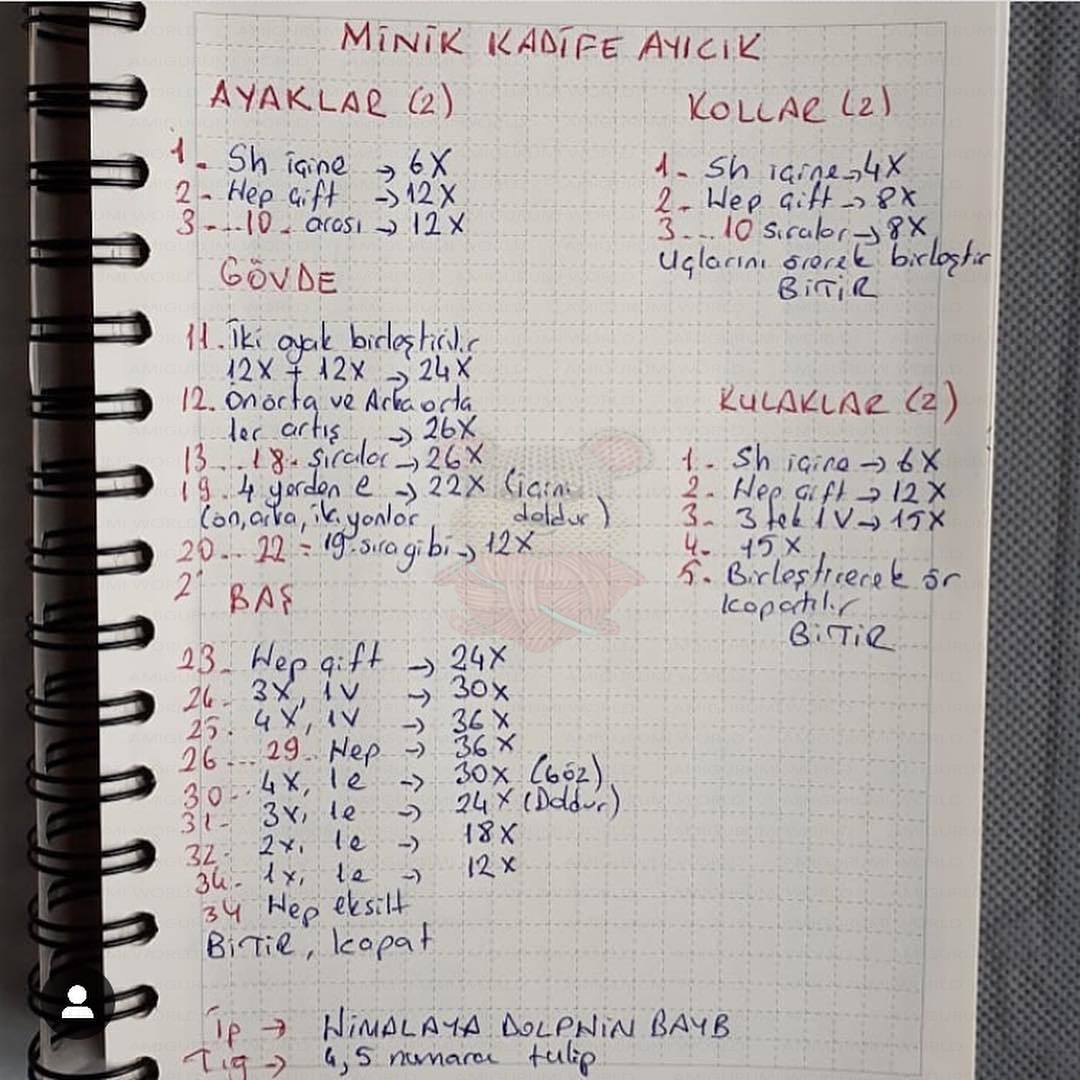 MİNİK KADİFE AYICIK
AYAKLAR (2)
1- Sh içine → 6X
2- Hep çift → 12X
3-...10- arası → 12X
GÖVDE
11. İki ayak birleştirilir
12X + 12X → 24X
12. Ön orta ve Arka orta
ler artış → 26X
13...18- sıralar → 26X
19. 4 yerden e → 22X (içini
(ön, arka, iki yonlor doldur)
20...22 = 19. sıra gibi → 12X
2
BAŞ
23- Hep çift → 24X
24- 3X, 1V → 30X
25. 4X, 1V → 36X
26...29. Hep → 36X
30.. 4X, 1e → 30X (Göz)
31- 3X, 1e → 24X (Doldur)
32- 2x, 1e → 18X
34. 1x, 1e → 12X
34 Hep eksilt
BİTİR, kapat
İp → HİMALAYA DOLPHİN BAYB
Tığ → 4,5 numara tulip
KOLLAR (2)
1- Sh içine → 4X
2- Hep çift → 8X
3...10 sıralar → 8X
Uçlarını örerek birleştir
BİTİR
KULAKLAR (2)
1- Sh içine → 6X
2- Hep çift → 12X
3- 3 tek 1V → 15X
4- 15X
5. Birleştirerek ör
kapatılır
BİTİR